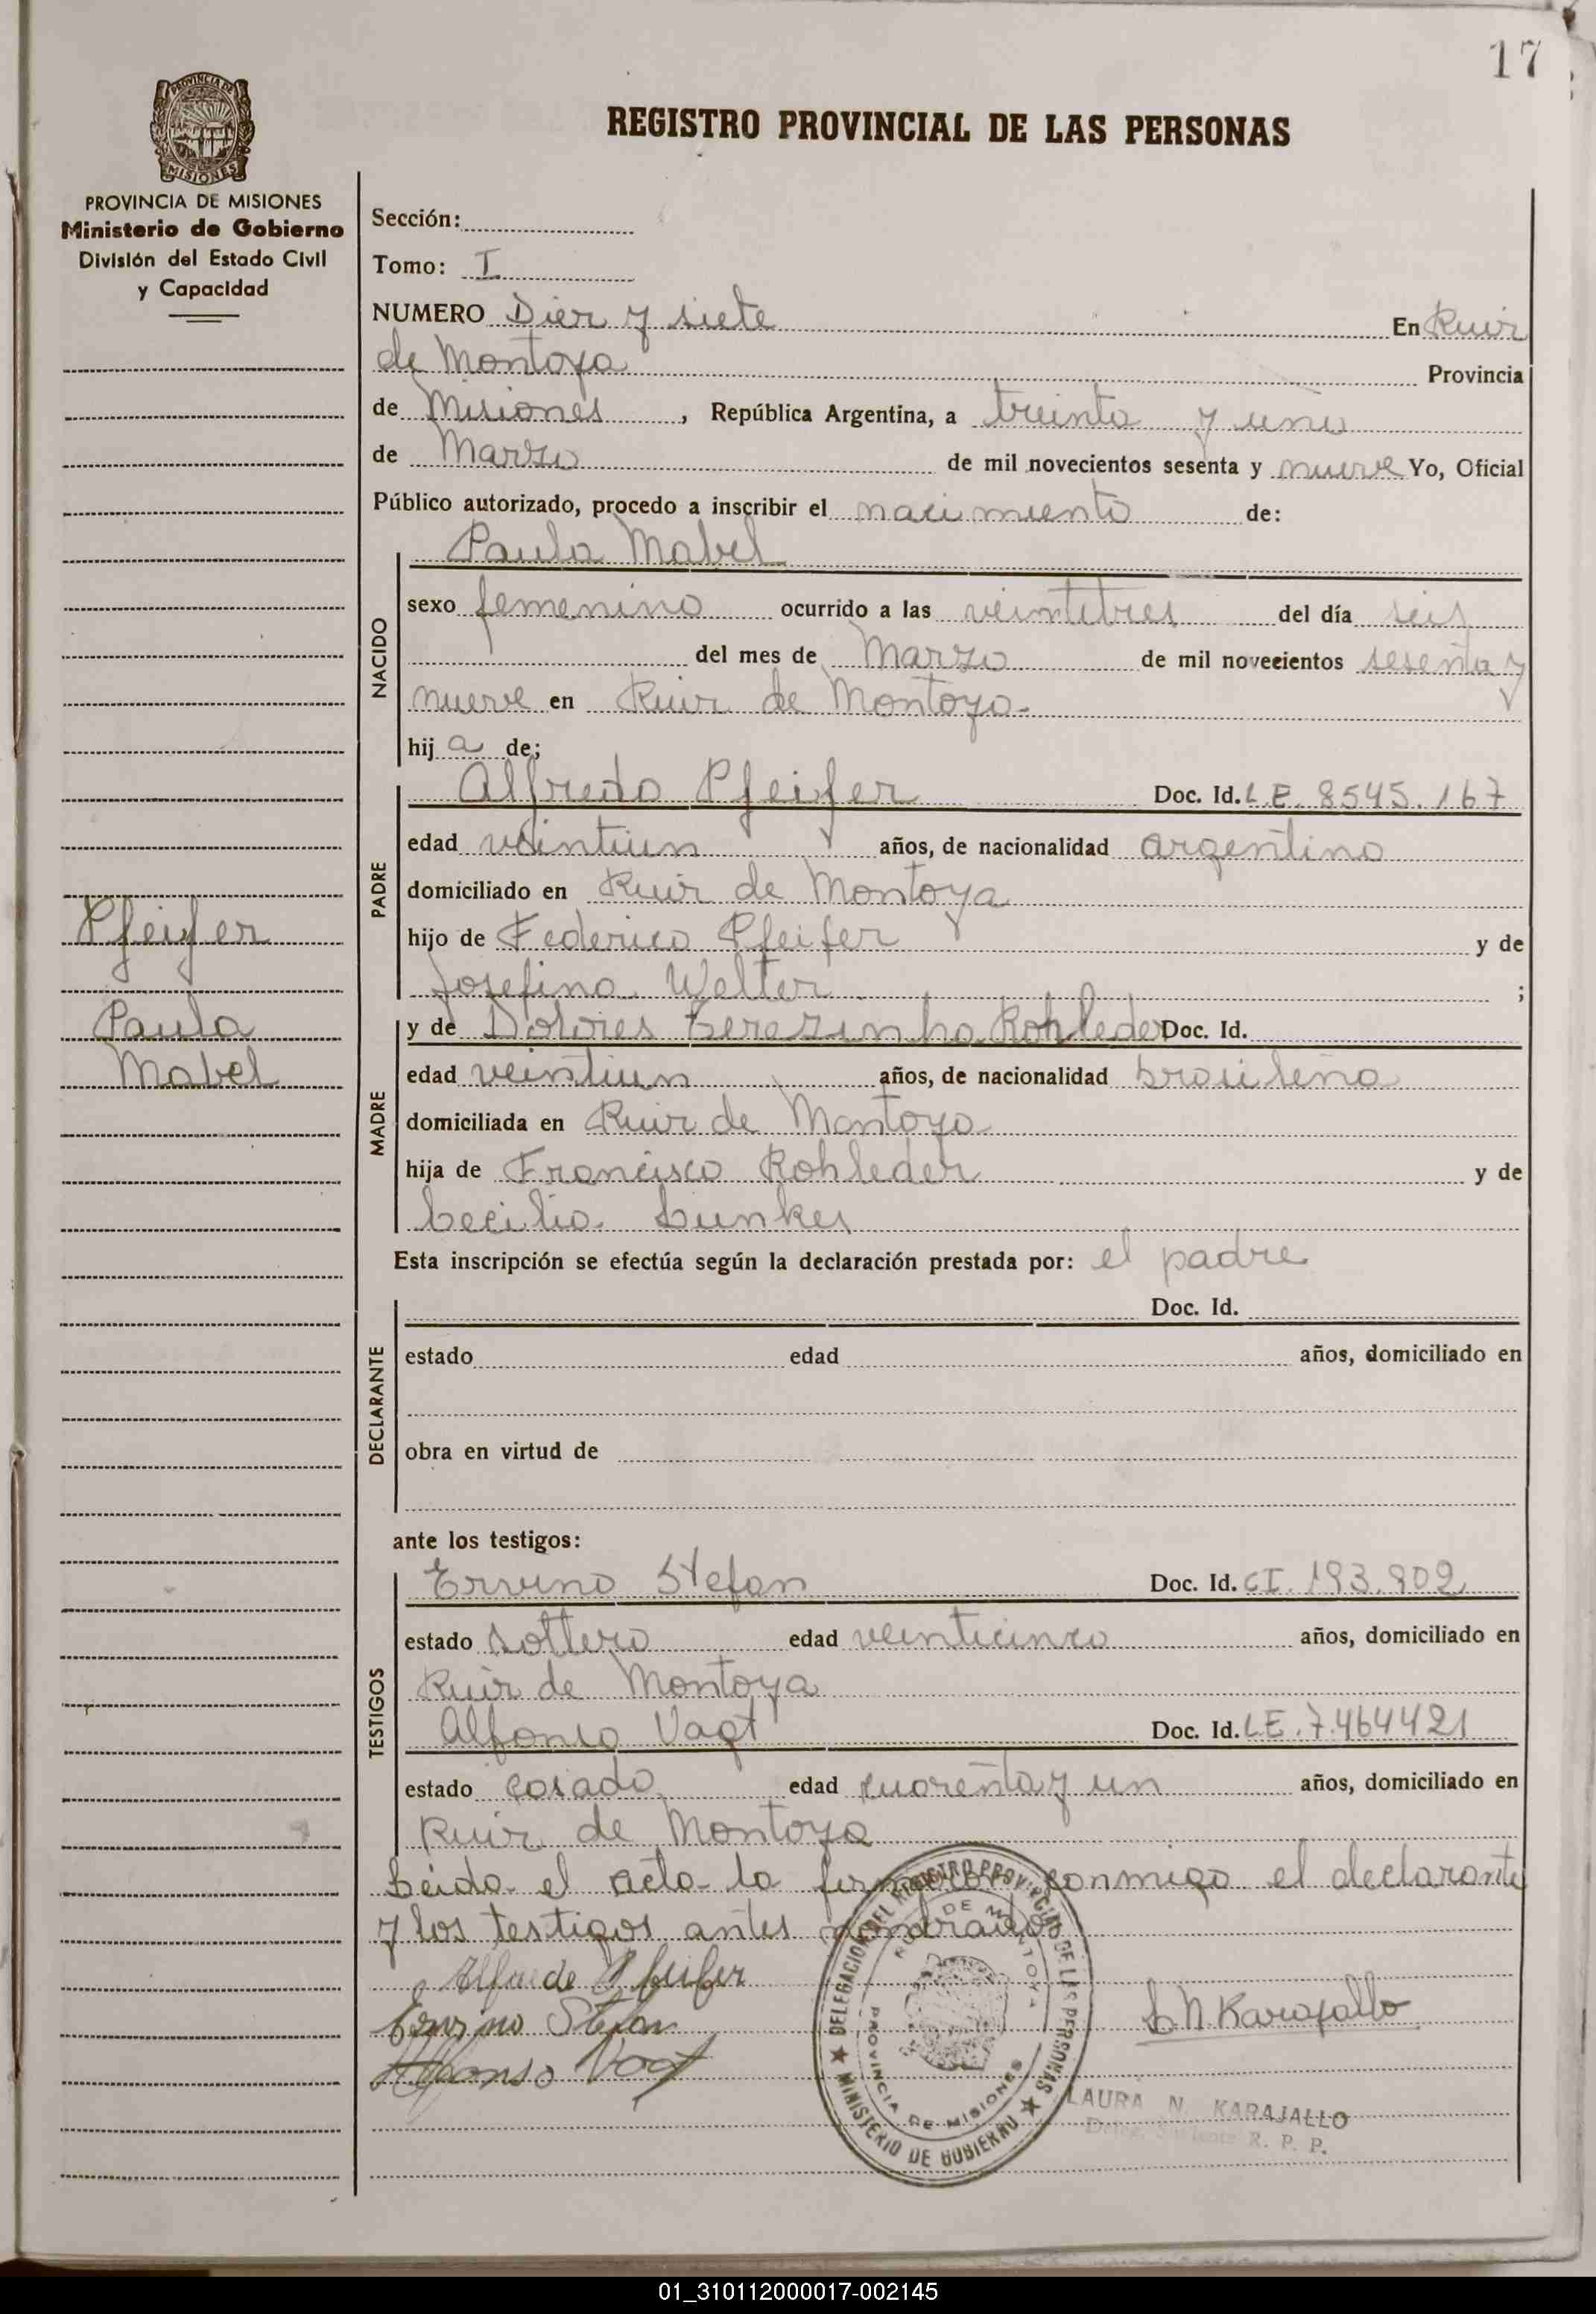 17
REGISTRO PROVINCIAL DE LAS PERSONAS
PROVINCIA DE MISIONES
MISIONES
PROVINCIA DE MISIONES
Ministerio de Gobierno
División del Estado Civil
y Capacidad
Pfeifer
Paula
Mabel
Sección:
Tomo: I
NUMERO Diez y siete En Ruiz
de Montoya Provincia
de Misiones, República Argentina, a treinta y uno
de Marzo de mil novecientos sesenta y nueve Yo, Oficial
Público autorizado, procedo a inscribir el nacimiento de:
NACIDO
Paula Mabel
sexo femenino ocurrido a las veintitres del día seis
del mes de Marzo de mil novecientos sesenta y
nueve en Ruiz de Montoya.
hij a de;
PADRE
Alfredo Pfeifer Doc. Id. L.E. 8545.167
edad veintiun años, de nacionalidad argentino
domiciliado en Ruiz de Montoya
hijo de Federico Pfeifer y de
Josefina Welter ;
MADRE
y de Dolores Terezinha Rohleder Doc. Id.
edad veintiun años, de nacionalidad brasileña
domiciliada en Ruiz de Montoya
hija de Francisco Rohleder y de
Cecilia Lunkes
Esta inscripción se efectúa según la declaración prestada por: el padre
DECLARANTE
Doc. Id.
estado edad años, domiciliado en
obra en virtud de
ante los testigos:
TESTIGOS
Ervino Stefan Doc. Id. CI. 193.902
estado soltero edad veinticinco años, domiciliado en
Ruiz de Montoya
Alfonso Vogt Doc. Id. L.E. 7.464421
estado casado edad cuarenta y un años, domiciliado en
Ruiz de Montoya
Leida el acta la firmaron conmigo el declarante
y los testigos antes nombrados
Alfredo Pfeifer
Ervino Stefan
Alfonso Vogt
DELEGACION DEL REGISTRO PROVINCIAL DE LAS PERSONAS
MINISTERIO DE GOBIERNO
RUIZ DE MONTOYA
PROVINCIA DE MISIONES
L N Karajallo
LAURA N. KARAJALLO
R. P. P.
01_310112000017-002145